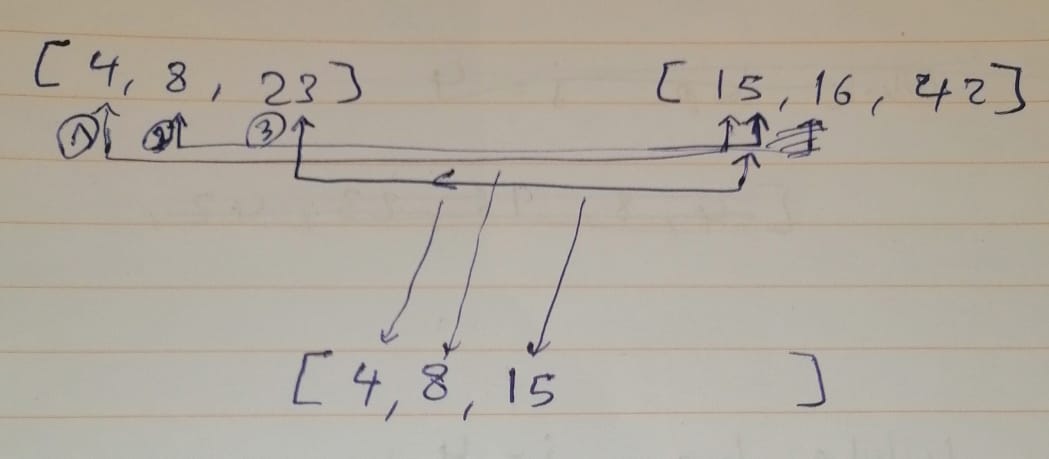 [ 4, 8, 23 ] [ 15, 16, 42 ]
① ② ③
[ 4, 8, 15 ]